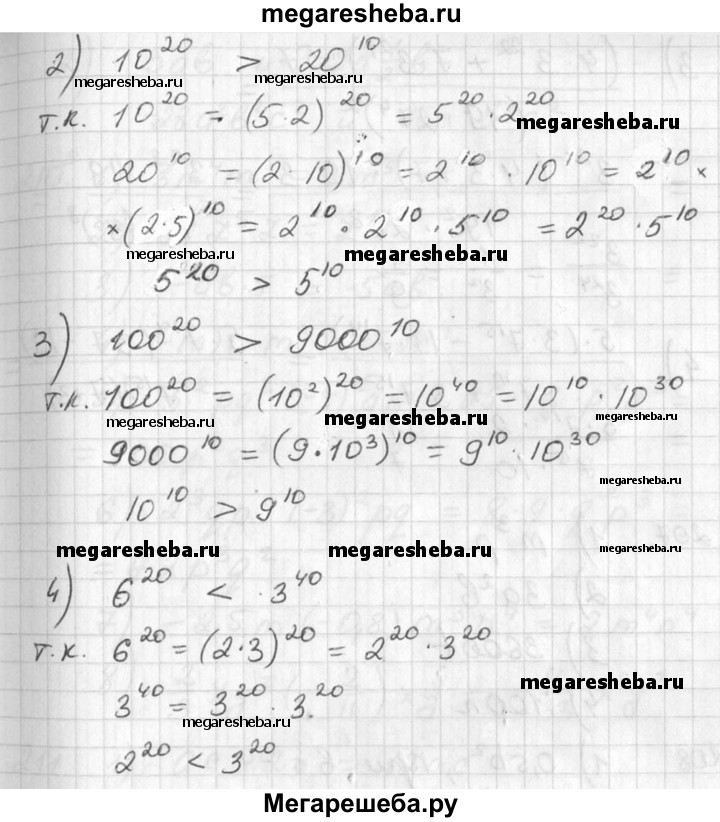 megaresheba.ru
2) 10²⁰ > 20¹⁰
megaresheba.ru megaresheba.ru
т.к. 10²⁰ = (5·2)²⁰ = 5²⁰·2²⁰
megaresheba.ru
20¹⁰ = (2·10)¹⁰ = 2¹⁰·10¹⁰ = 2¹⁰ ×
× (2·5)¹⁰ = 2¹⁰·2¹⁰·5¹⁰ = 2²⁰·5¹⁰
megaresheba.ru megaresheba.ru
5²⁰ > 5¹⁰
3) 100²⁰ > 9000¹⁰
т.к. 100²⁰ = (10²)²⁰ = 10⁴⁰ = 10¹⁰·10³⁰
megaresheba.ru megaresheba.ru megaresheba.ru
9000¹⁰ = (9·10³)¹⁰ = 9¹⁰·10³⁰
megaresheba.ru
10¹⁰ > 9¹⁰
megaresheba.ru megaresheba.ru megaresheba.ru
4) 6²⁰ < 3⁴⁰
т.к. 6²⁰ = (2·3)²⁰ = 2²⁰·3²⁰
3⁴⁰ = 3²⁰·3²⁰
megaresheba.ru megaresheba.ru
2²⁰ < 3²⁰
Мегарешеба.ру